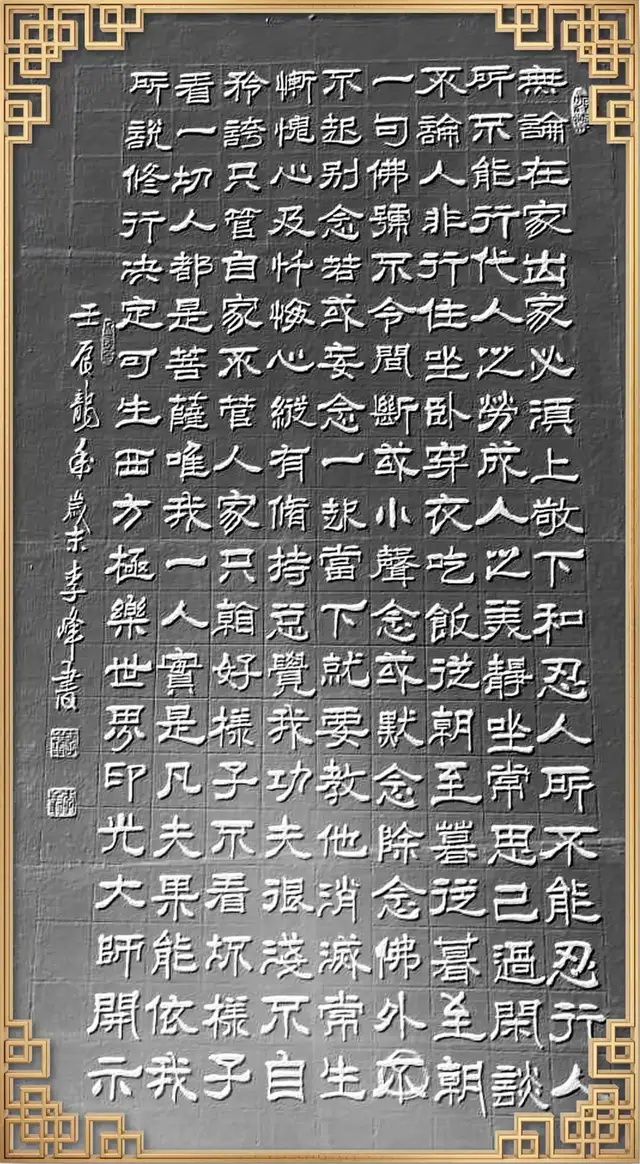 無論在家出家必須上敬下和忍人所不能忍行人
所不能行代人之勞成人之美靜坐常思己過閑談
不論人非行住坐卧穿衣吃飯從朝至暮從暮至朝
一句佛號不令間斷或小聲念或默念除念佛外不
不起别念若或妄念一起當下就要教他消滅常生
慚愧心及忏悔心縱有脩持总覺我功夫很淺不自
矜誇只管自家不管人家只看好樣子不看坏樣子
看一切人都是菩薩唯我一人實是凡夫果能依我
所說修行决定可生西方極樂世界印光大師開示
壬辰龍年歲末李峰書